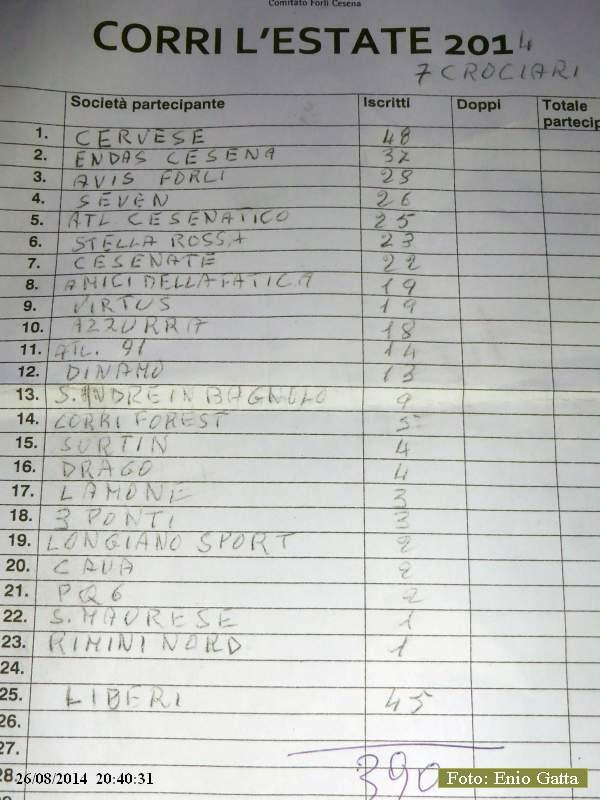 Comitato Forlì Cesena
CORRI L'ESTATE 2014
7 CROCIARI
Società partecipante Iscritti Doppi Totale partecip
1. CERVESE 48
2. ENDAS CESENA 32
3. AVIS FORLI 28
4. SEVEN 26
5. ATL CESENATICO 25
6. STELLA ROSSA 23
7. CESENATE 22
8. AMICI DELLA FATICA 19
9. VIRTUS 19
10. AZZURRA 18
11. ATL. 91 14
12. DINAMO 13
13. S. ANDRE IN BAGNOLO 9
14. CORRI FOREST 5
15. SURTIN 4
16. DRAGO 4
17. LAMONE 3
18. 3 PONTI 3
19. LONGIANO SPORT 2
20. CAVA 2
21. PQ6 2
22. S. MAURESE 1
23. RIMINI NORD 1
24.
25. LIBERI 45
26.
27.
28. 390
26/08/2014 20:40:31
Foto: Enio Gatta